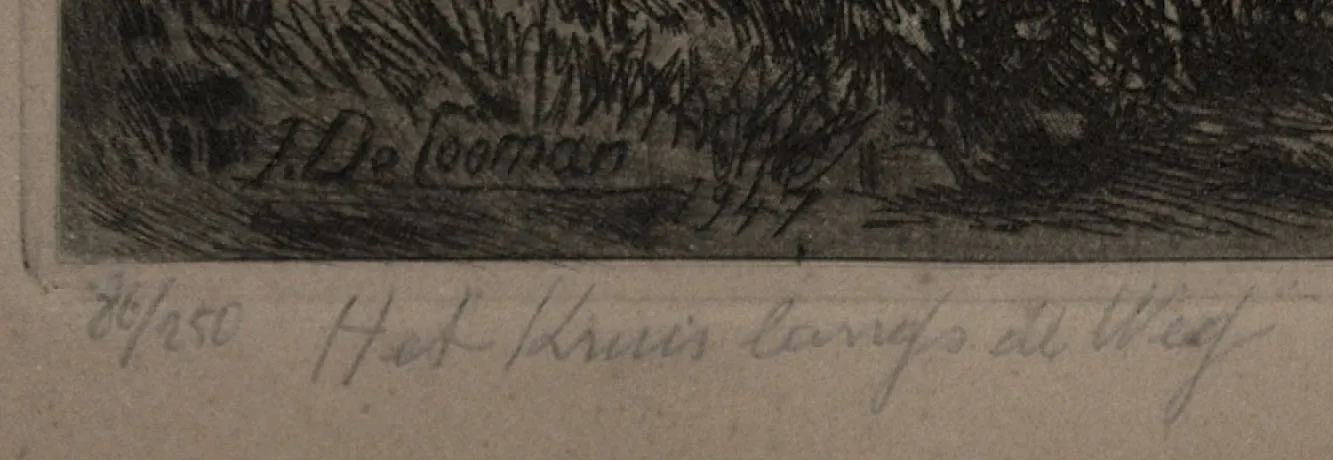 J. De Cooman
1947
86/250 Het Kruis langs de Weg